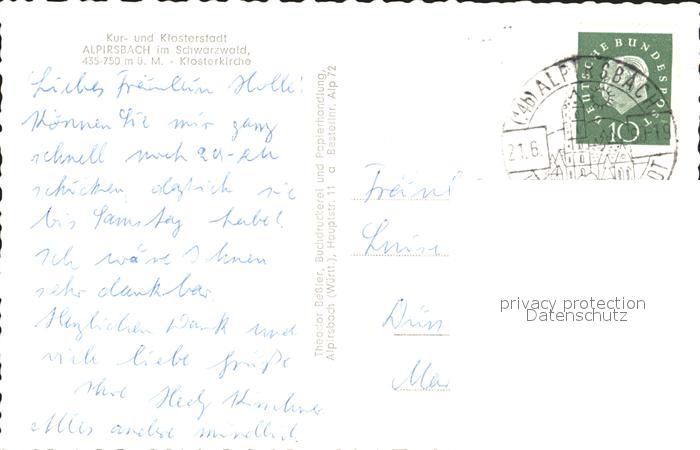 Kur- und Klosterstadt
ALPIRSBACH im Schwarzwald,
435-750 m ü. M. - Klosterkirche
Liebes Fräulein Holle!
Können Sie mir ganz
schnell noch
schicken, daß ich sie
bis Samstag habe!
Ich wäre Ihnen
sehr dankbar.
Herzlichen Dank und
viele liebe Grüße
Ihre Hedy Kirschner
Alles andere mündlich.
Theodor Beßler, Buchdruckerei und Papierhandlung,
Alpirsbach (Württ.), Hauptstr. 11 a Bestellnr. Alp 72
DEUTSCHE BUNDESPOST
10
(14b) ALPIRSBACH
21.6.
Fräul
Luise
Dürr
privacy protection
Datenschutz